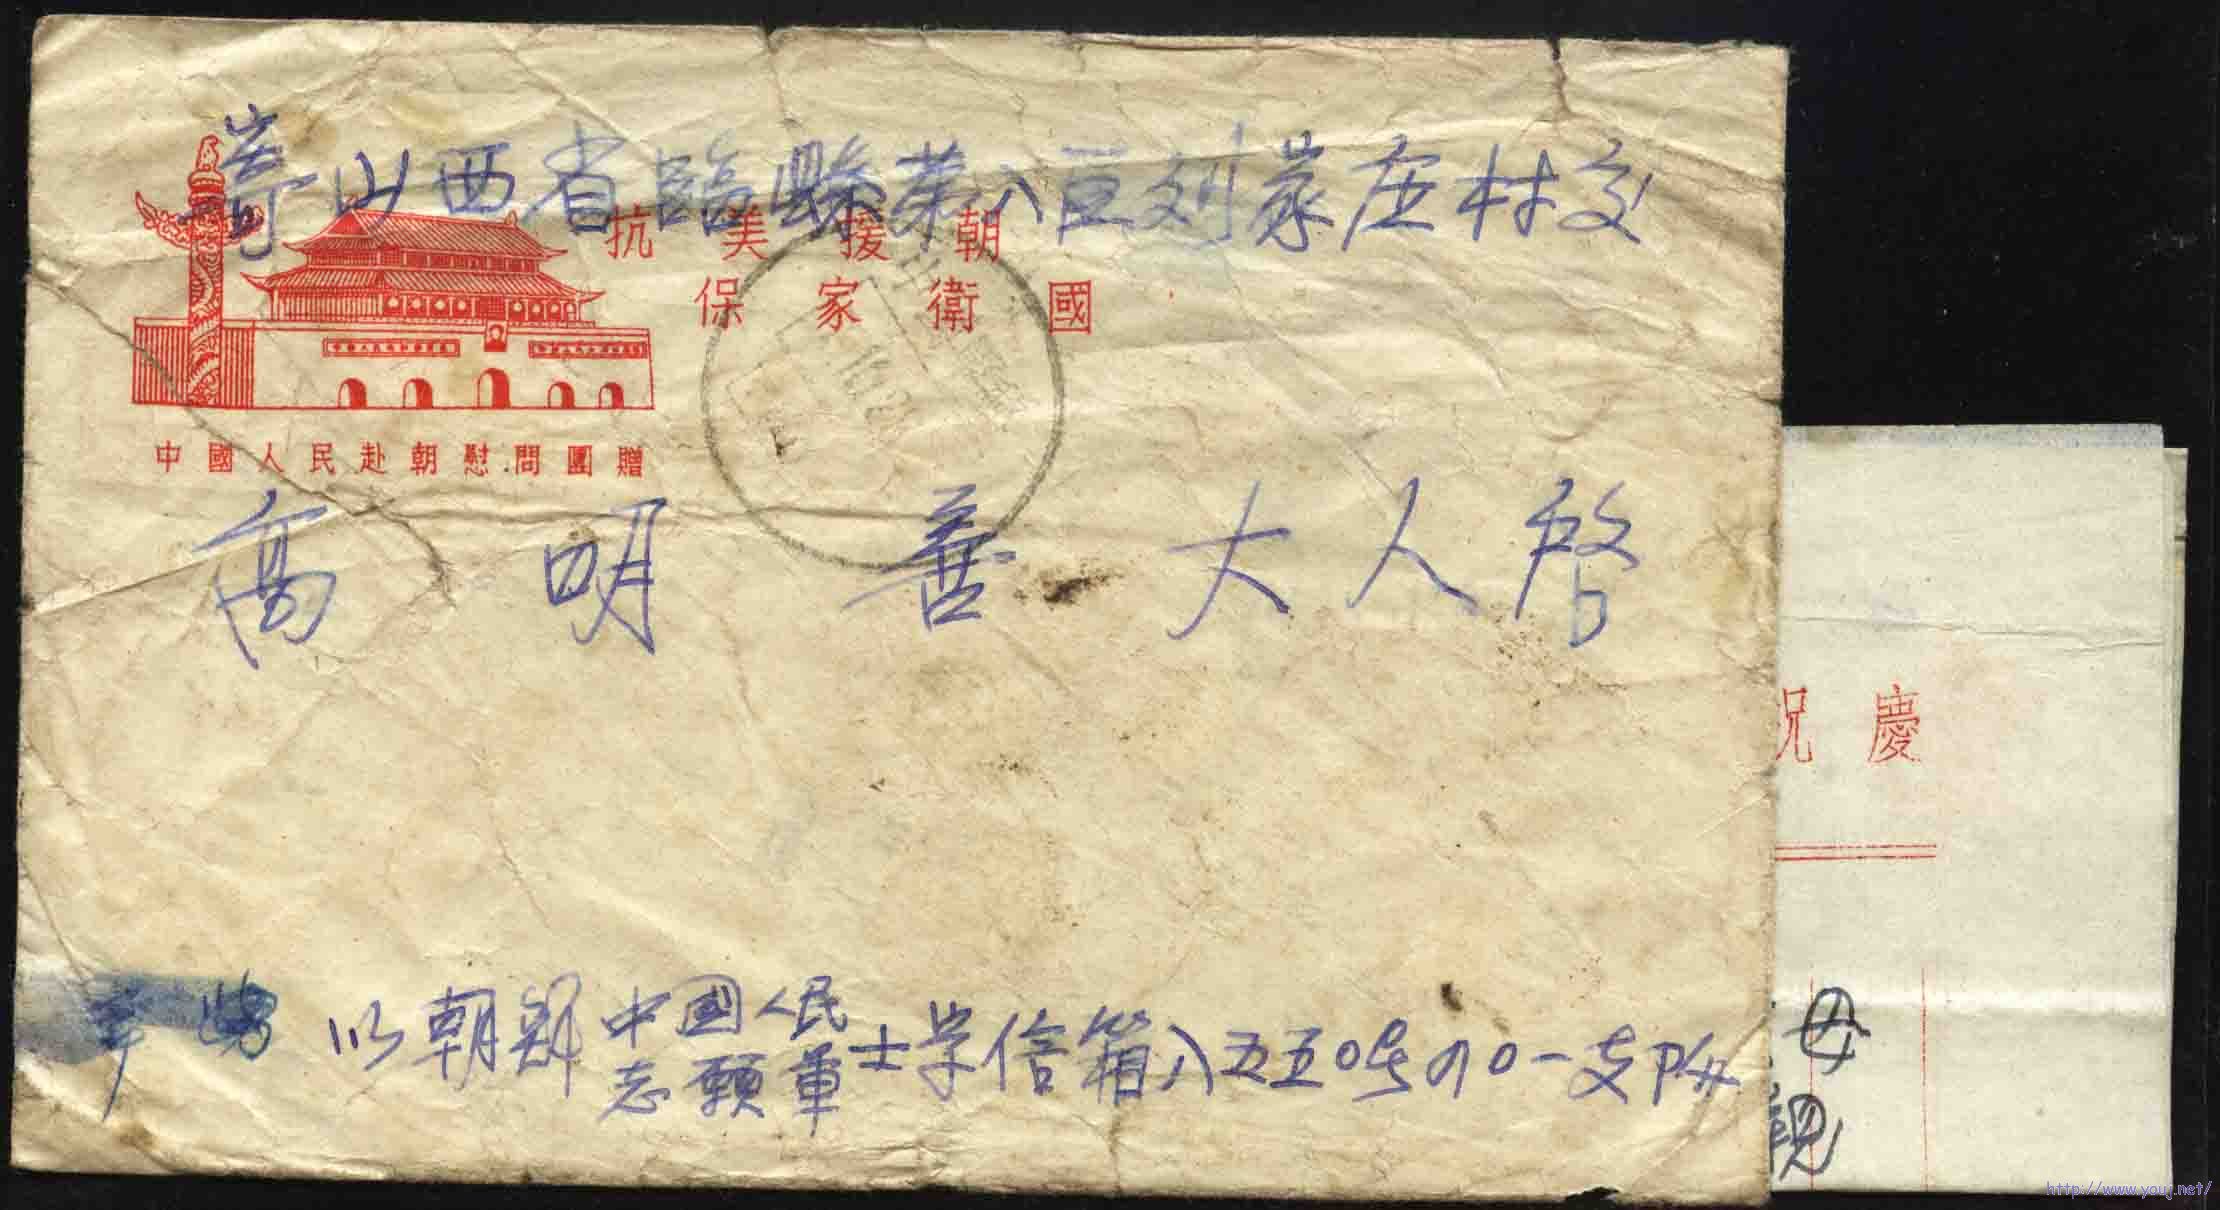 寄山西省臨縣第八区刘家庄村交
抗美援朝
保家衛國
中國人民赴朝慰問團贈
高明善大人啓
朝鮮中國人民
志願軍
信箱八五五0号
0一支队
祝慶
母
親
http://www.youj.net/